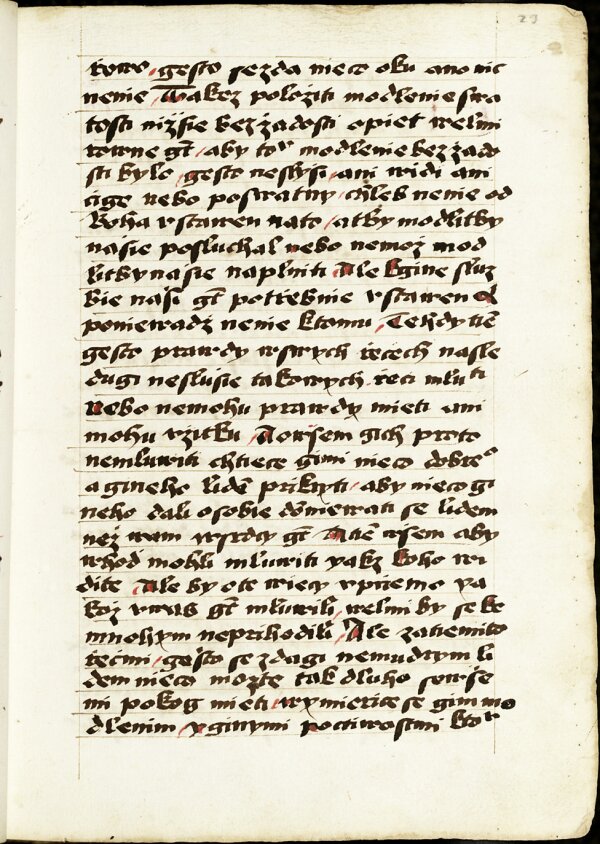 23
gesto se zda nieco oku ano nic
nenie Takez poloziti modlenie swa
tosti nizsie bez zadosti opiet welmi
rowne gt aby to modlenie bez zado
sti bylo gesto neslysi ani widi ani
cige nebo poswatny chleb nenie od
boha vstawen nato atby modlitby
nasie posluchal nebo nemoz mod
litby nasie naplniti Ale kgine sluz
bie nasi gt potrebnie vstawen
poniewadz nenie ktomu Tehdy tie
gesto prawdy wswych recech nasle
dugi neslusie takowych reci mluti
nebo nemohu prawdy mieti ani
mohu vzitku Aowsem gich proto
nemluwiti chtiece gimi nieco dobreo
a gineho lide prikryti aby nieco gi
neho dali osobie domierati se lidem
nez wam wsrdcy gt Atie wsem aby
whod mohli mluwiti yakz koho wi
dite Ale by ote wiecy vpriemo ya
koz vwas gt mluwili welmi by se ke
mnohym neprihodili Ale zatiemito
recimi gesto se zdagi nemudrym li
dem nieco mozte tak dluho sewsse
mi pokog mieti wymierice se gim mo
dlenim y ginymi poctiwostmi kto